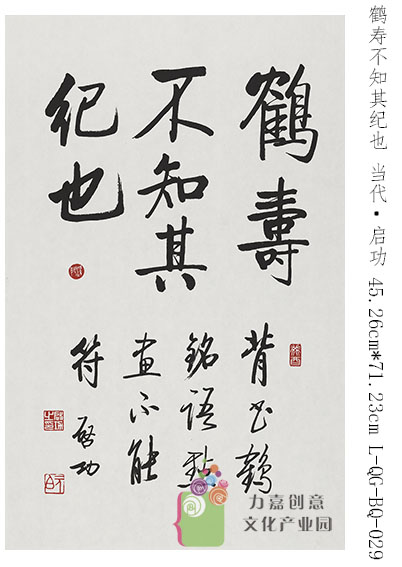 鶴壽
不知其
紀也
背书鶴
銘語點
畫不能
符 啓功
鹤寿不知其纪也 当代·启功 45.26cm*71.23cm L-QG-BQ-029
力嘉创意
文化产业园